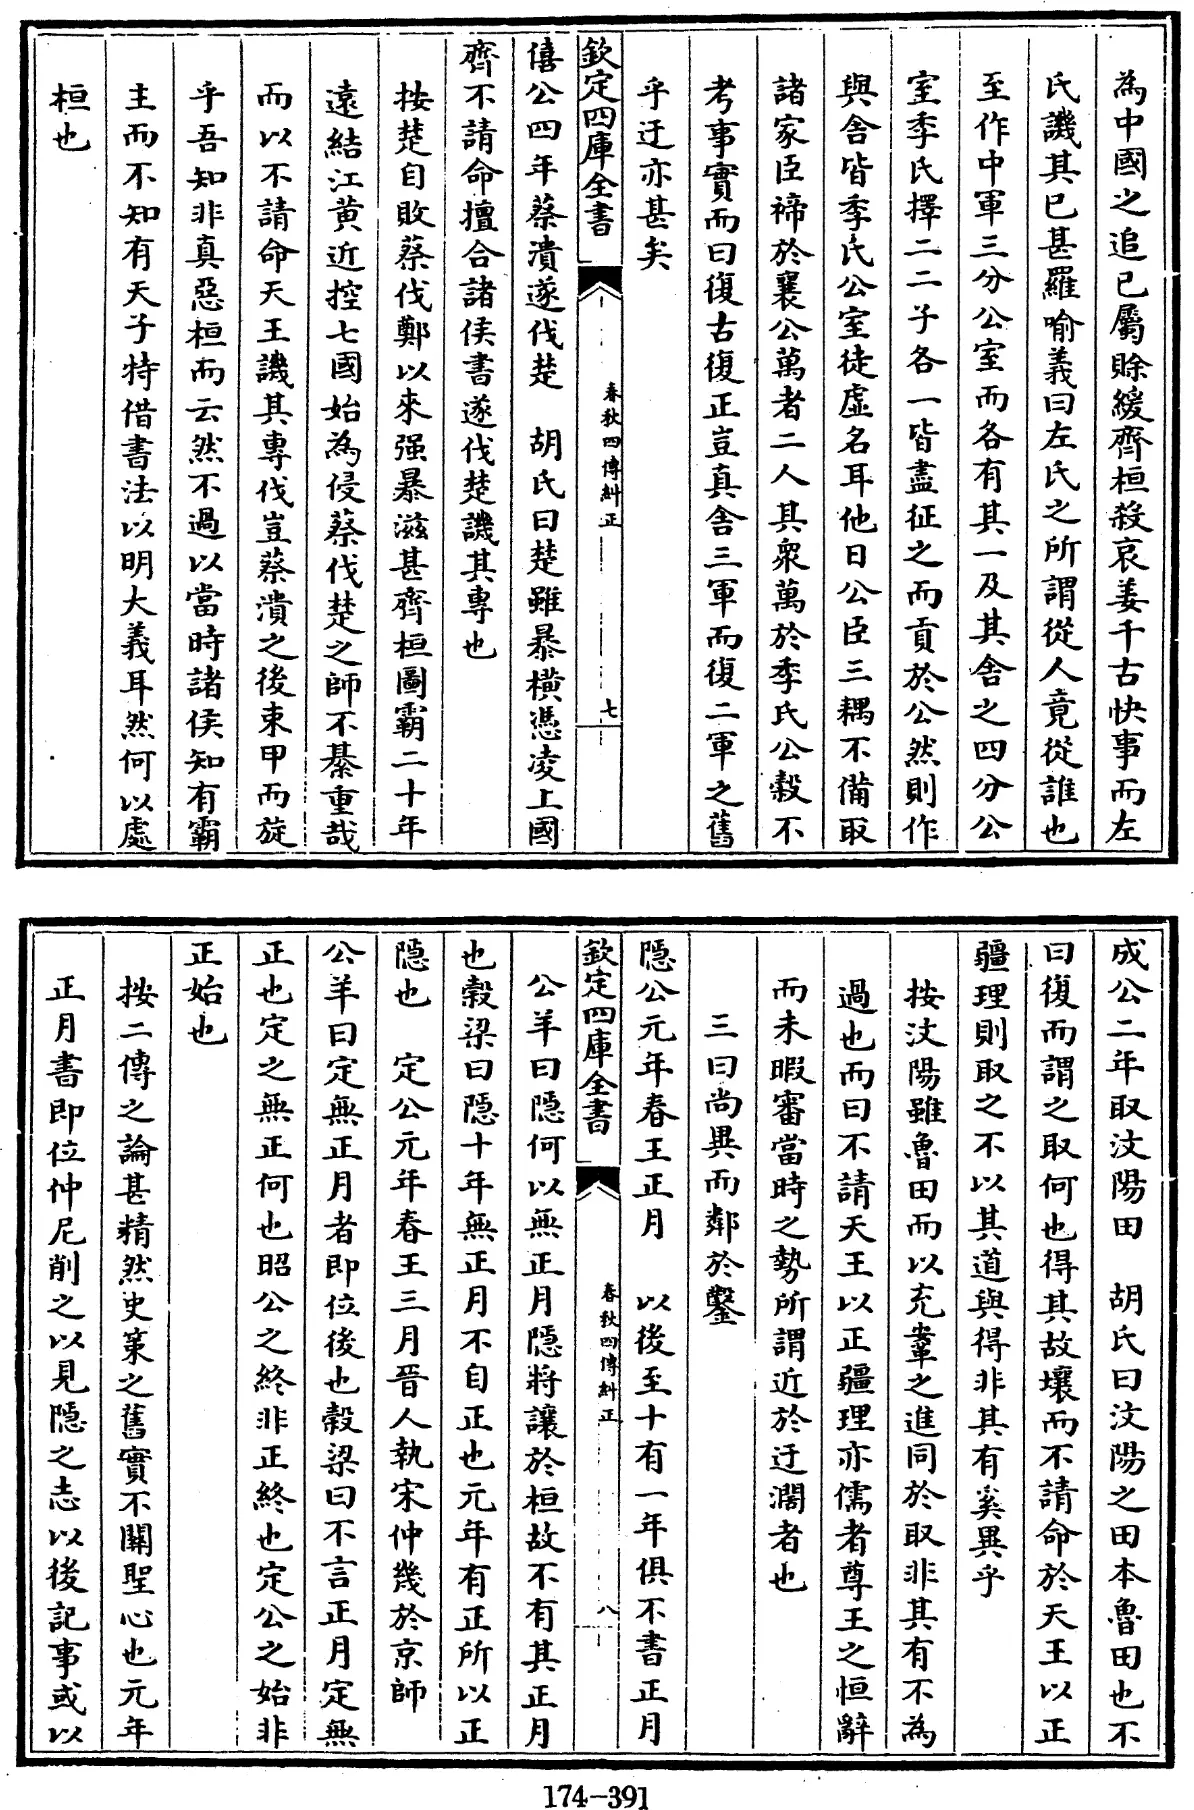 為中國之追已屬賖緩齊桓殺哀姜千古快事而左
氏譏其已甚羅喻義曰左氏之所謂從人竟從誰也
至作中軍三分公室而各有其一及其舍之四分公
室季氏擇二二子各一皆盡征之而貢於公然則作
與舍皆季氏公室徒虛名耳他日公臣三耦不備取
諸家臣禘於襄公萬者二人其衆萬於季氏公穀不
考事實而曰復古復正豈真舍三軍而復二軍之舊
乎迂亦甚矣
欽定四庫全書
春秋四傳糾正
七
僖公四年蔡潰遂伐楚　胡氏曰楚雖暴橫憑凌上國
齊不請命擅合諸侯書遂伐楚譏其專也
按楚自敗蔡伐鄭以來强暴滋甚齊桓圖霸二十年
遠結江黄近控七國始為侵蔡伐楚之師不綦重哉
而以不請命天王譏其專伐豈蔡潰之後束甲而旋
乎吾知非真惡桓而云然不過以當時諸侯知有霸
主而不知有天子特借書法以明大義耳然何以處
桓也
成公二年取汶陽田　胡氏曰汶陽之田本魯田也不
曰復而謂之取何也得其故壤而不請命於天王以正
疆理則取之不以其道與得非其有奚異乎
按汶陽雖魯田而以充鞏之進同於取非其有不為
過也而曰不請天王以正疆理亦儒者尊王之恒辭
而未暇審當時之勢所謂近於迂濶者也
三曰尚異而鄰於鑿
隠公元年春王正月　以後至十有一年俱不書正月
欽定四庫全書
春秋四傳糾正
八
公羊曰隠何以無正月隠將讓於桓故不有其正月
也穀梁曰隠十年無正月不自正也元年有正所以正
隠也　定公元年春王三月晉人執宋仲幾於京師
公羊曰定無正月者即位後也穀梁曰不言正月定無
正也定之無正何也昭公之終非正終也定公之始非
正始也
按二傳之論甚精然史策之舊實不關聖心也元年
正月書即位仲尼削之以見隠之志以後記事或以
174-391